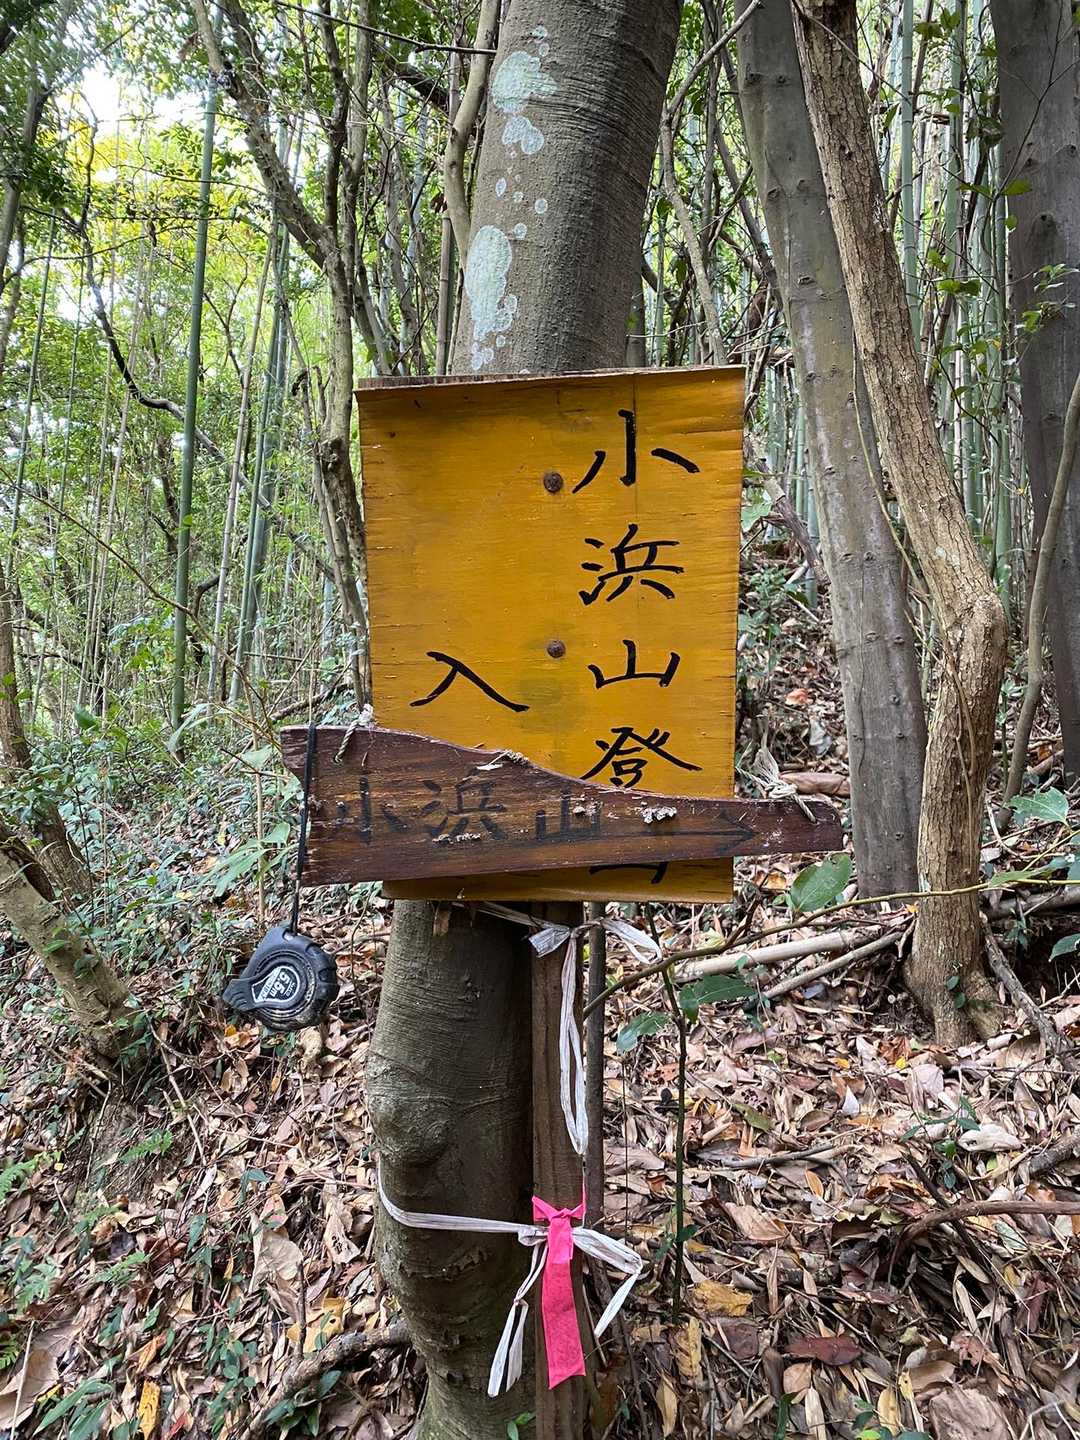 小浜山登
入
小浜山→
5.5m